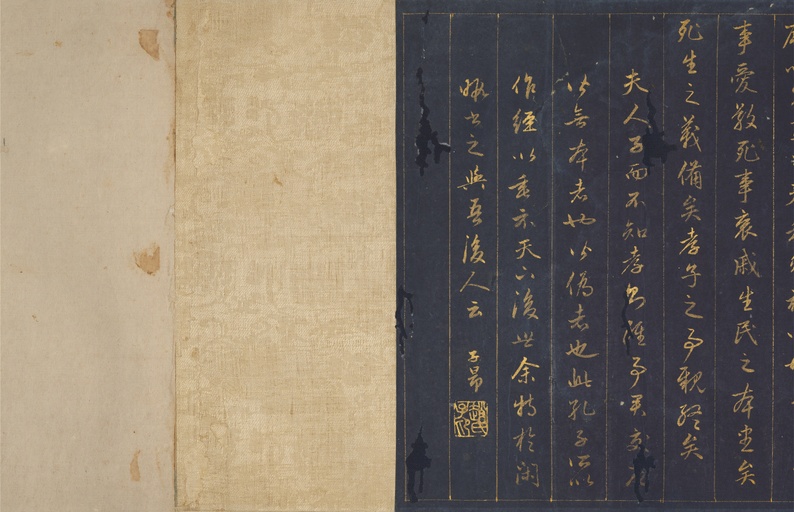 事愛敬死事哀戚生民之本盡矣
死生之義備矣孝子之事親終矣
夫人子而不知孝雖事君交
皆無本者也皆偽者也此孔子所以
作經以垂示天下後世余特於閑
暇書之與吾後人云 子昂
趙氏子昂